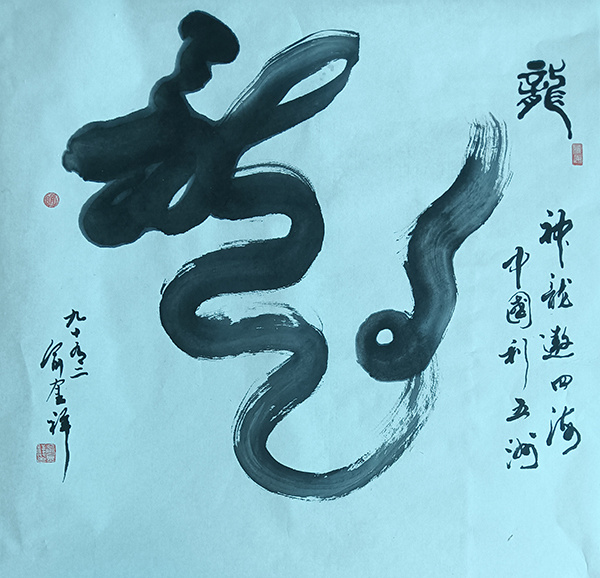 龍
神龍遨四海
中國利五洲
龍
九十有二
俞奎祥